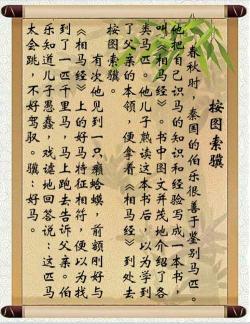 按图索骥
春秋时，秦国的伯乐很善于鉴别马匹。
他把自己识马的知识和经验写成一本书，
叫《相马经》。书中图文并茂地介绍了各
类马匹。他儿子熟读这本书后，以为学到
了父亲的本领，便拿着《相马经》到处去
按图索骥。
有次他见到一只癞蛤蟆，前额刚好与
《相马经》上的好马特征相符，便以为找
到了一匹千里马，马上跑去告诉父亲。伯
乐知道儿子愚蠢，戏谑地回答说：这匹马
太会跳，不好驾驭。骥：好马。